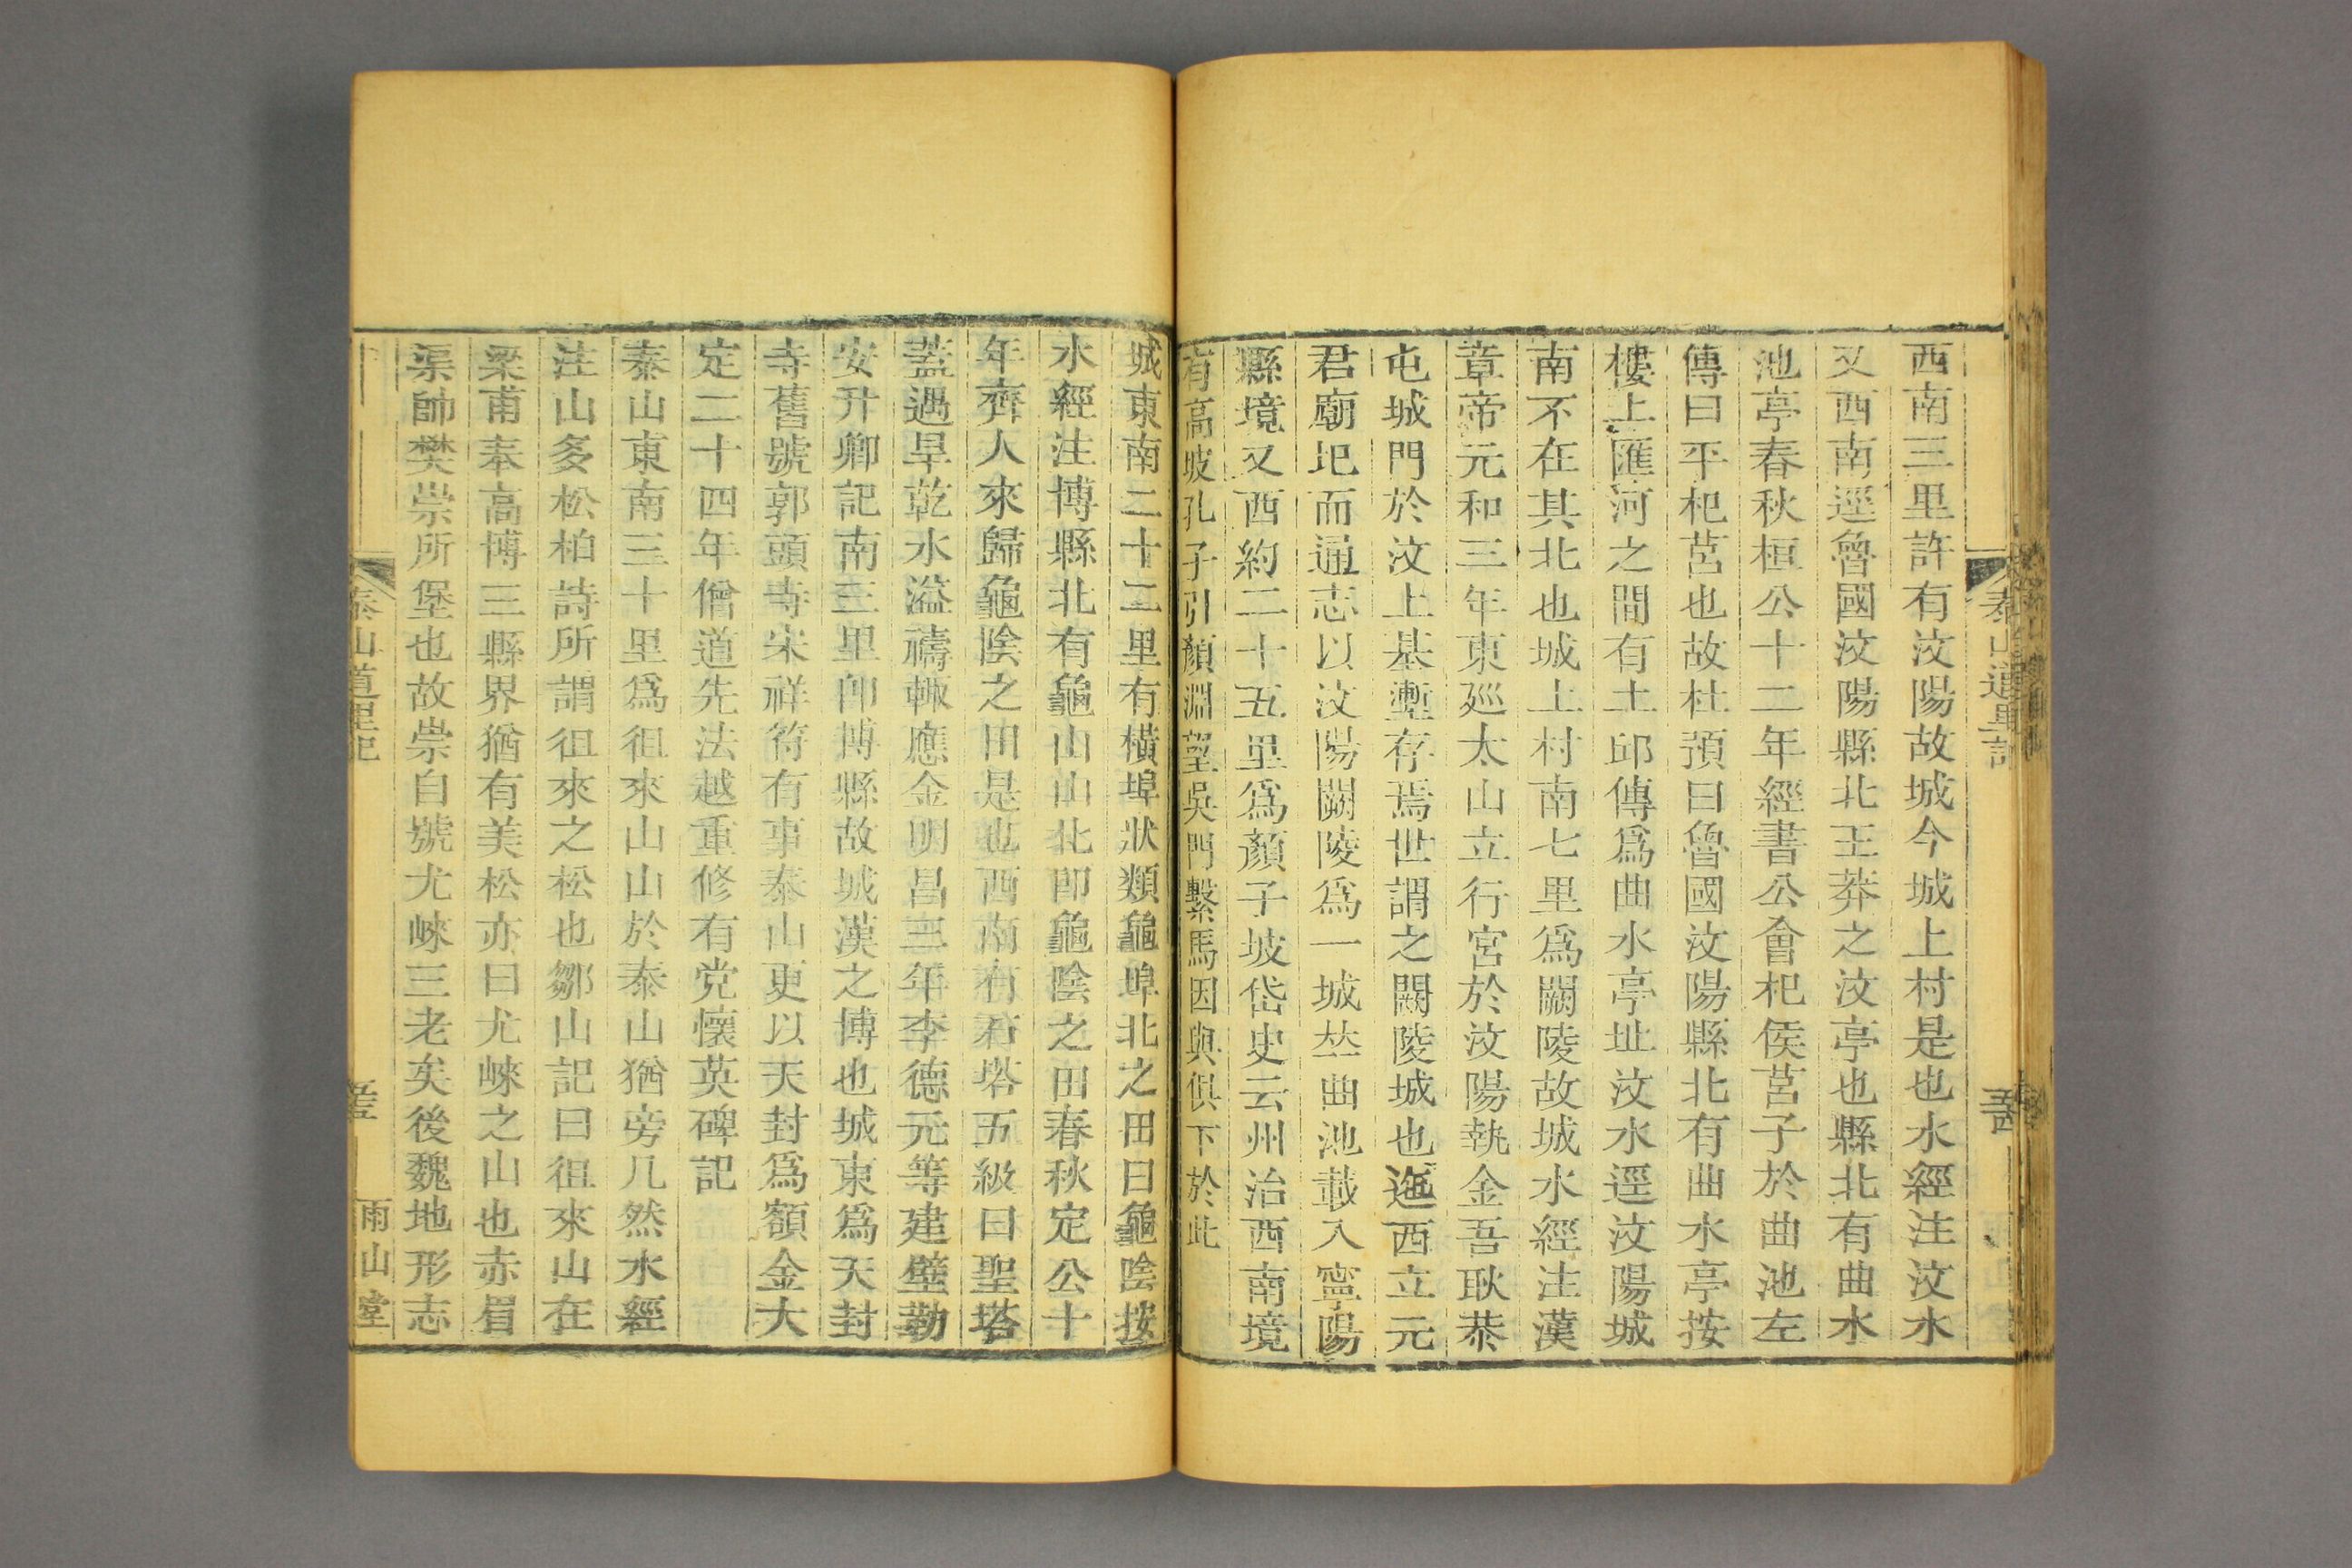 泰山道里記
西南三里許有汶陽故城今城上村是也水經注汶水
又西南逕魯國汶陽縣北王莽之汶亭也縣北有曲水
池亭春秋桓公十二年經書公會杞侯莒子於曲池左
傳曰平杞莒也故杜預曰魯國汶陽縣北有曲水亭按
樓上匯河之間有土邱傳爲曲水亭址汶水逕汶陽城
南不在其北也城上村南七里爲闕陵故城水經注漢
章帝元和三年東廵太山立行宮於汶陽執金吾耿恭
屯城門於汶上基壍存焉世謂之闕陵城也迤西立元
君廟圯而通志以汶陽闕陵爲一城竝曲池載入寧陽
縣境又西約二十五里爲顏子坡岱史云州治西南境
有高坡孔子引顏淵望吳門繫馬因與俱下於此
城東南二十二里有橫埠狀類龜埠北之田曰龜陰按
水經注博縣北有龜山山北即龜陰之田春秋定公十
年齊人來歸龜陰之田是也西南有石塔五級曰聖塔
蓋遇旱乾水溢禱輒應金明昌三年李德元等建壁勒
安升卿記南三里即博縣故城漢之博也城東爲天封
寺舊號郭頭寺宋祥符有事泰山更以天封爲額金大
定二十四年僧道先法越重修有党懷英碑記
泰山東南三十里爲徂來山山於泰山猶旁几然水經
注山多松柏詩所謂徂來之松也鄒山記曰徂來山在
梁甫奉高博三縣界猶有美松亦曰尤崍之山也赤眉
渠帥樊崇所堡也故崇自號尤崍三老矣後魏地形志
泰山道里記
雨山堂